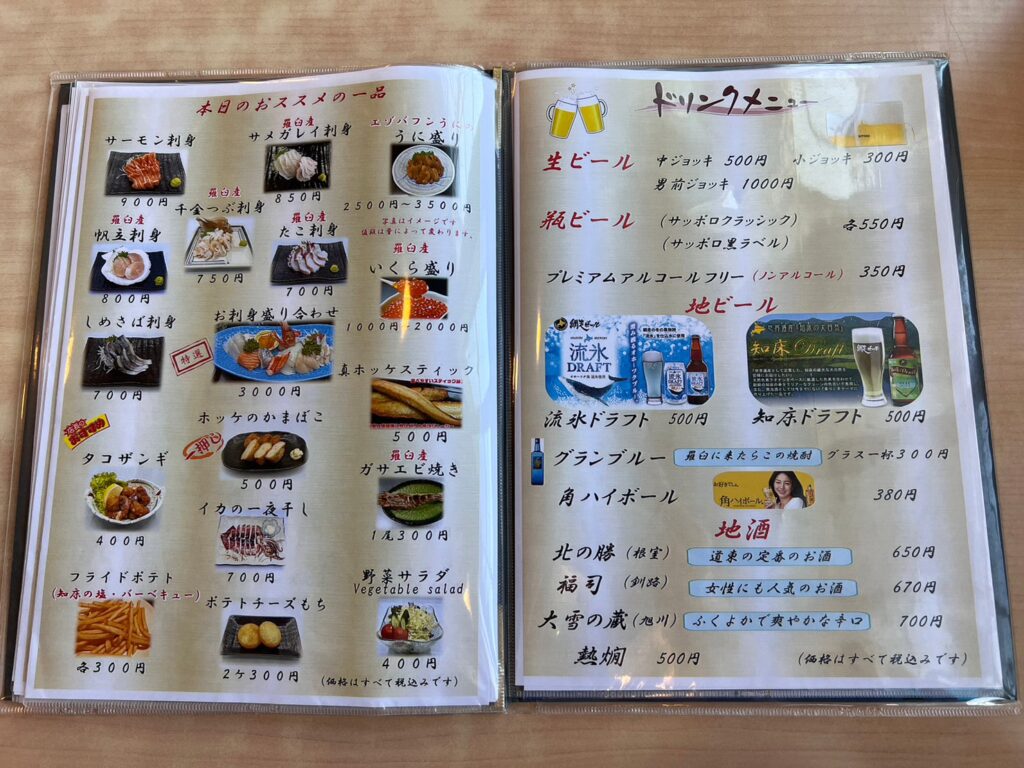 本日のおススメの一品
サーモン刺身
900円
羅臼産
サメガレイ刺身
850円
エゾバフンうにの
うに盛り
2500円～3500円
写真はイメージです
値段は量によって変わります。
羅臼産
帆立刺身
800円
羅臼産
千金つぶ刺身
750円
羅臼産
たこ刺身
700円
羅臼産
いくら盛り
1000円～2000円
しめさば刺身
700円
お刺身盛り合わせ
特選
3000円
真ホッケスティック
500円
タコザンギ
400円
ホッケのかまぼこ
500円
羅臼産
ガサエビ焼き
1尾300円
イカの一夜干し
700円
フライドポテト
(知床の塩・バーベキュー)
各300円
ポテトチーズもち
2ケ300円
野菜サラダ
Vegetable salad
400円
(価格はすべて税込みです)
ドリンクメニュー
生ビール 中ジョッキ 500円 小ジョッキ 300円
男前ジョッキ 1000円
瓶ビール (サッポロクラッシック) 各550円
(サッポロ黒ラベル)
プレミアムアルコールフリー (ノンアルコール) 350円
地ビール
網走ビール
流氷
DRAFT
知床Draft
流氷ドラフト 500円
知床ドラフト 500円
グランブルー 羅臼に来たらこの焼酎 グラス一杯300円
角ハイボール 角ハイボール 380円
地酒
北の勝 (根室) 道東の定番のお酒 650円
福司 (釧路) 女性にも人気のお酒 670円
大雪の蔵 (旭川) ふくよかで爽やかな辛口 700円
熱燗 500円
(価格はすべて税込みです)